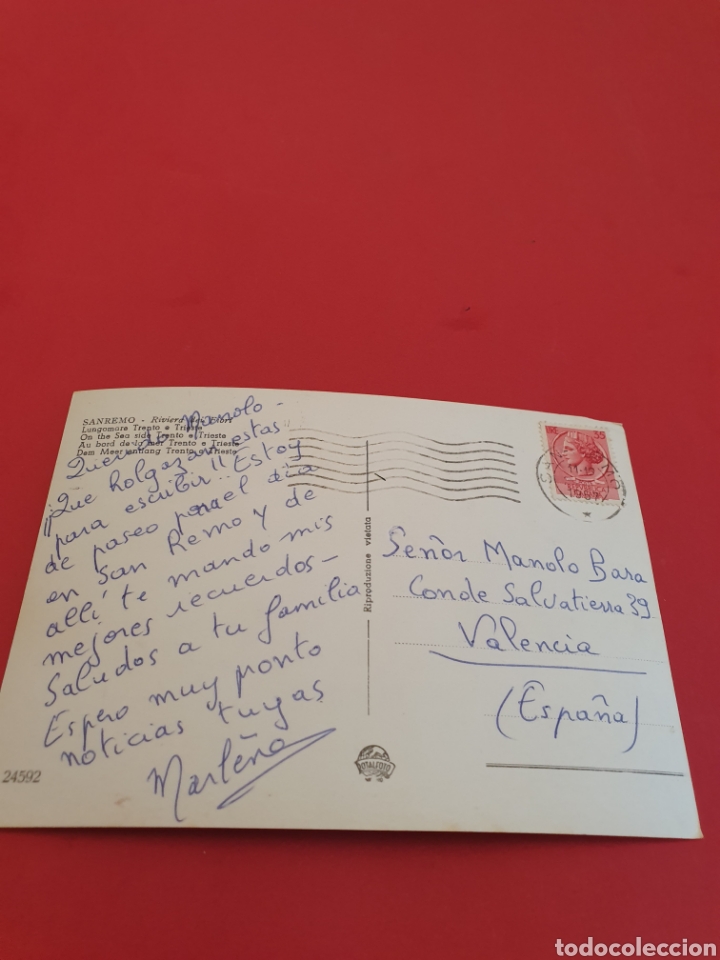 SANREMO - Riviera dei Fiori
Lungomare Trento e Trieste
On the Sea side Trento e Trieste
Au bord de la mer Trento e Trieste
Dem Meer entlang Trento e Trieste
Querido Manolo -
¡¡Que holgazán estas
para escribir!! Estoy
de paseo para el día
en San Remo y de
alli te mando mis
mejores recuerdos -
Saludos a tu familia
Espero muy pronto
noticias tuyas
24592
Riproduzione vietata
35
Señor Manolo Bara
Conde Salvatierra 39
Valencia
(España)
todocoleccion